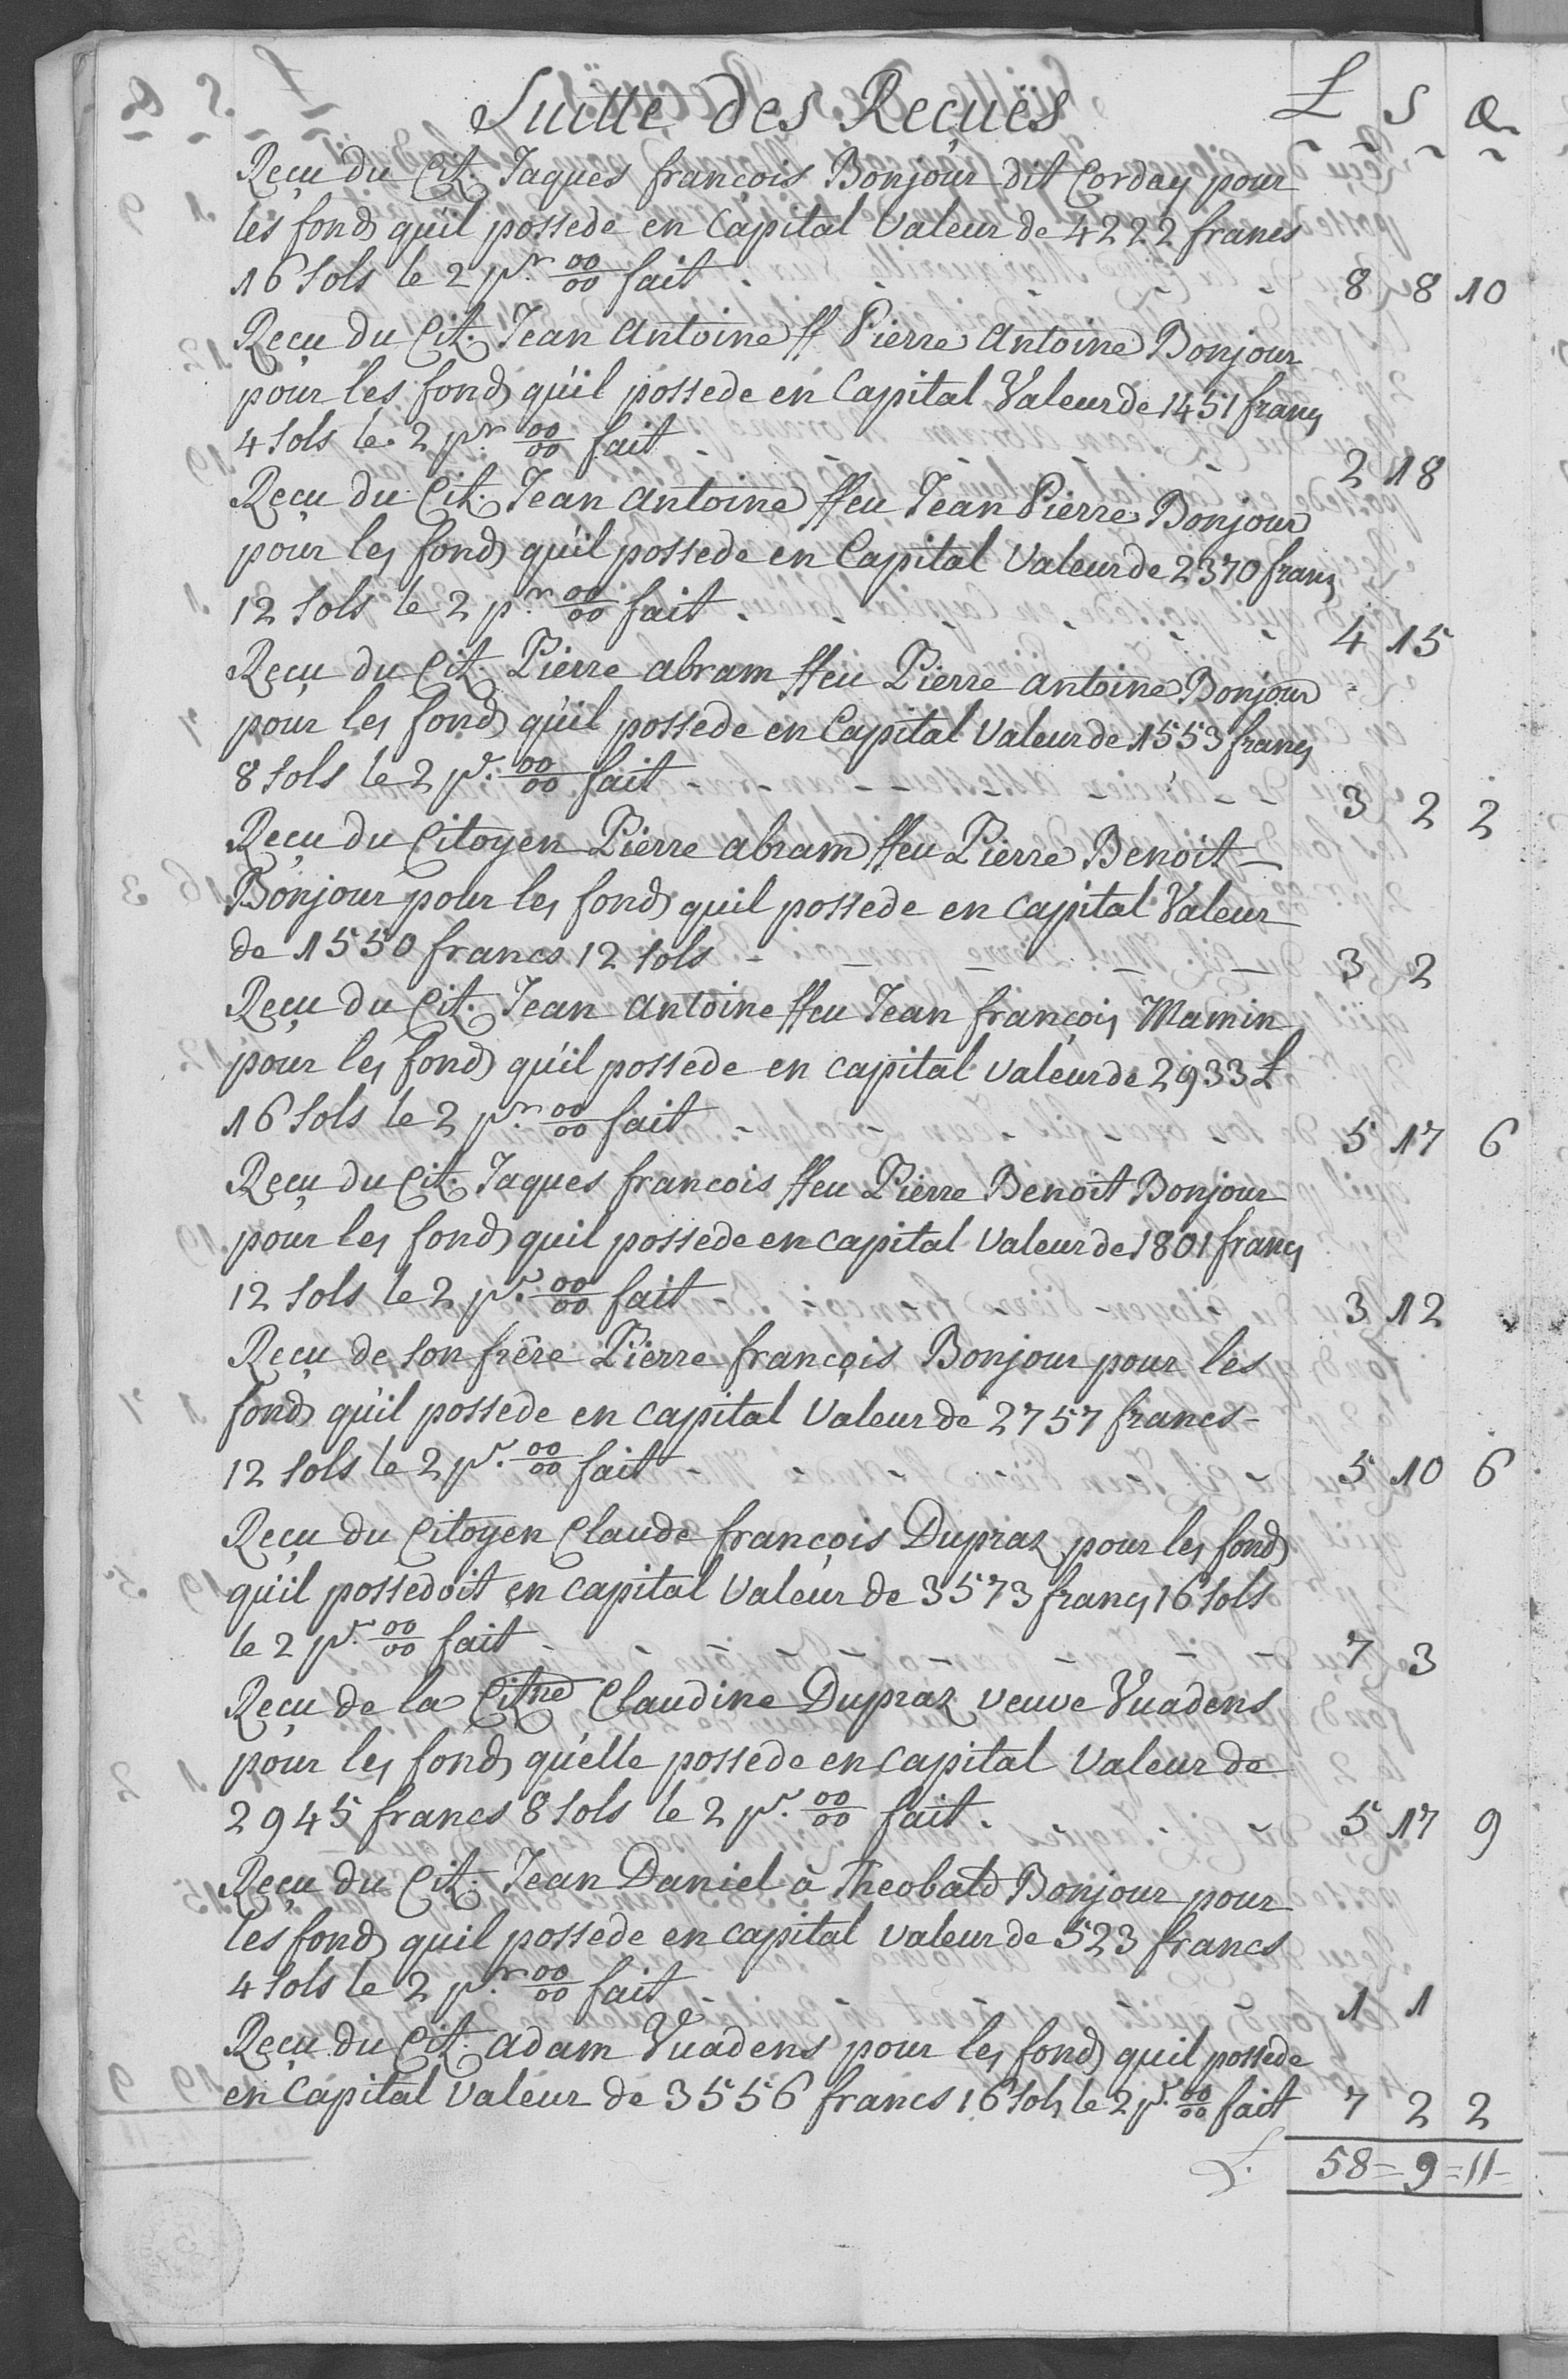 Suitte des Reçuës L S d
Reçu du Cit. Jaques françois Bonjour dit Corday pour
les fonds qu'il possede en Capital Valeur de 4222 francs
16 sols le 2 pr. 00/00 fait 8 8 10
Reçu du Cit. Jean Antoine ff Pierre Antoine Bonjour
pour les fonds qu'il possede en Capital Valeur de 1451 francs
4 sols le 2 pr. 00/00 fait 2 18
Reçu du Cit. Jean Antoine ffeu Jean Pierre Bonjour
pour les fonds qu'il possede en Capital Valeur de 2370 francs
12 sols le 2 pr. 00/00 fait 4 15
Reçu du Cit. Pierre abram ffeu Pierre antoine Bonjour
pour les fonds qu'il possede en Capital Valeur de 1553 francs
8 sols le 2 pr. 00/00 fait 3 2 2
Reçu du Citoyen Pierre abram ffeu Pierre Benoit
Bonjour pour les fonds quil possede en capital Valeur
de 1550 francs 12 sols 3 2
Reçu du Cit. Jean Antoine ffeu Jean françois Mamin
pour les fonds qu'il possede en capital valeur de 2933 L
16 sols le 2 pr. 00/00 fait 5 17 6
Reçu du Cit. Jaques francois ffeu Pierre Benoit Bonjour
pour les fonds quil possede en capital Valeur de 1801 francs
12 sols le 2 pr. 00/00 fait 3 12
Reçu de son frère Pierre françois Bonjour pour les
fonds qu'il possede en capital Valeur de 2757 francs
12 sols le 2 pr. 00/00 fait 5 10 6
Reçu du Citoyen Claude françois Dupraz pour les fonds
qu'il possedoit en capital Valeur de 3573 francs 16 sols
le 2 pr. 00/00 fait 7 3
Reçu de la Citne Claudine Dupraz veuve Vuadens
pour les fonds qu'elle possede en capital Valeur de
2945 francs 8 sols le 2 pr. 00/00 fait 5 17 9
Reçu du Cit. Jean Daniel à Theobald Bonjour pour
les fonds quil possede en capital valeur de 523 francs
4 sols le 2 pr. 00/00 fait 1 1
Reçu du Cit. Adam Vuadens pour les fonds quil possede
en Capital Valeur de 3556 francs 16 sols le 2 pr. 00/00 fait 7 2 2
L. 58 = 9 = 11 =